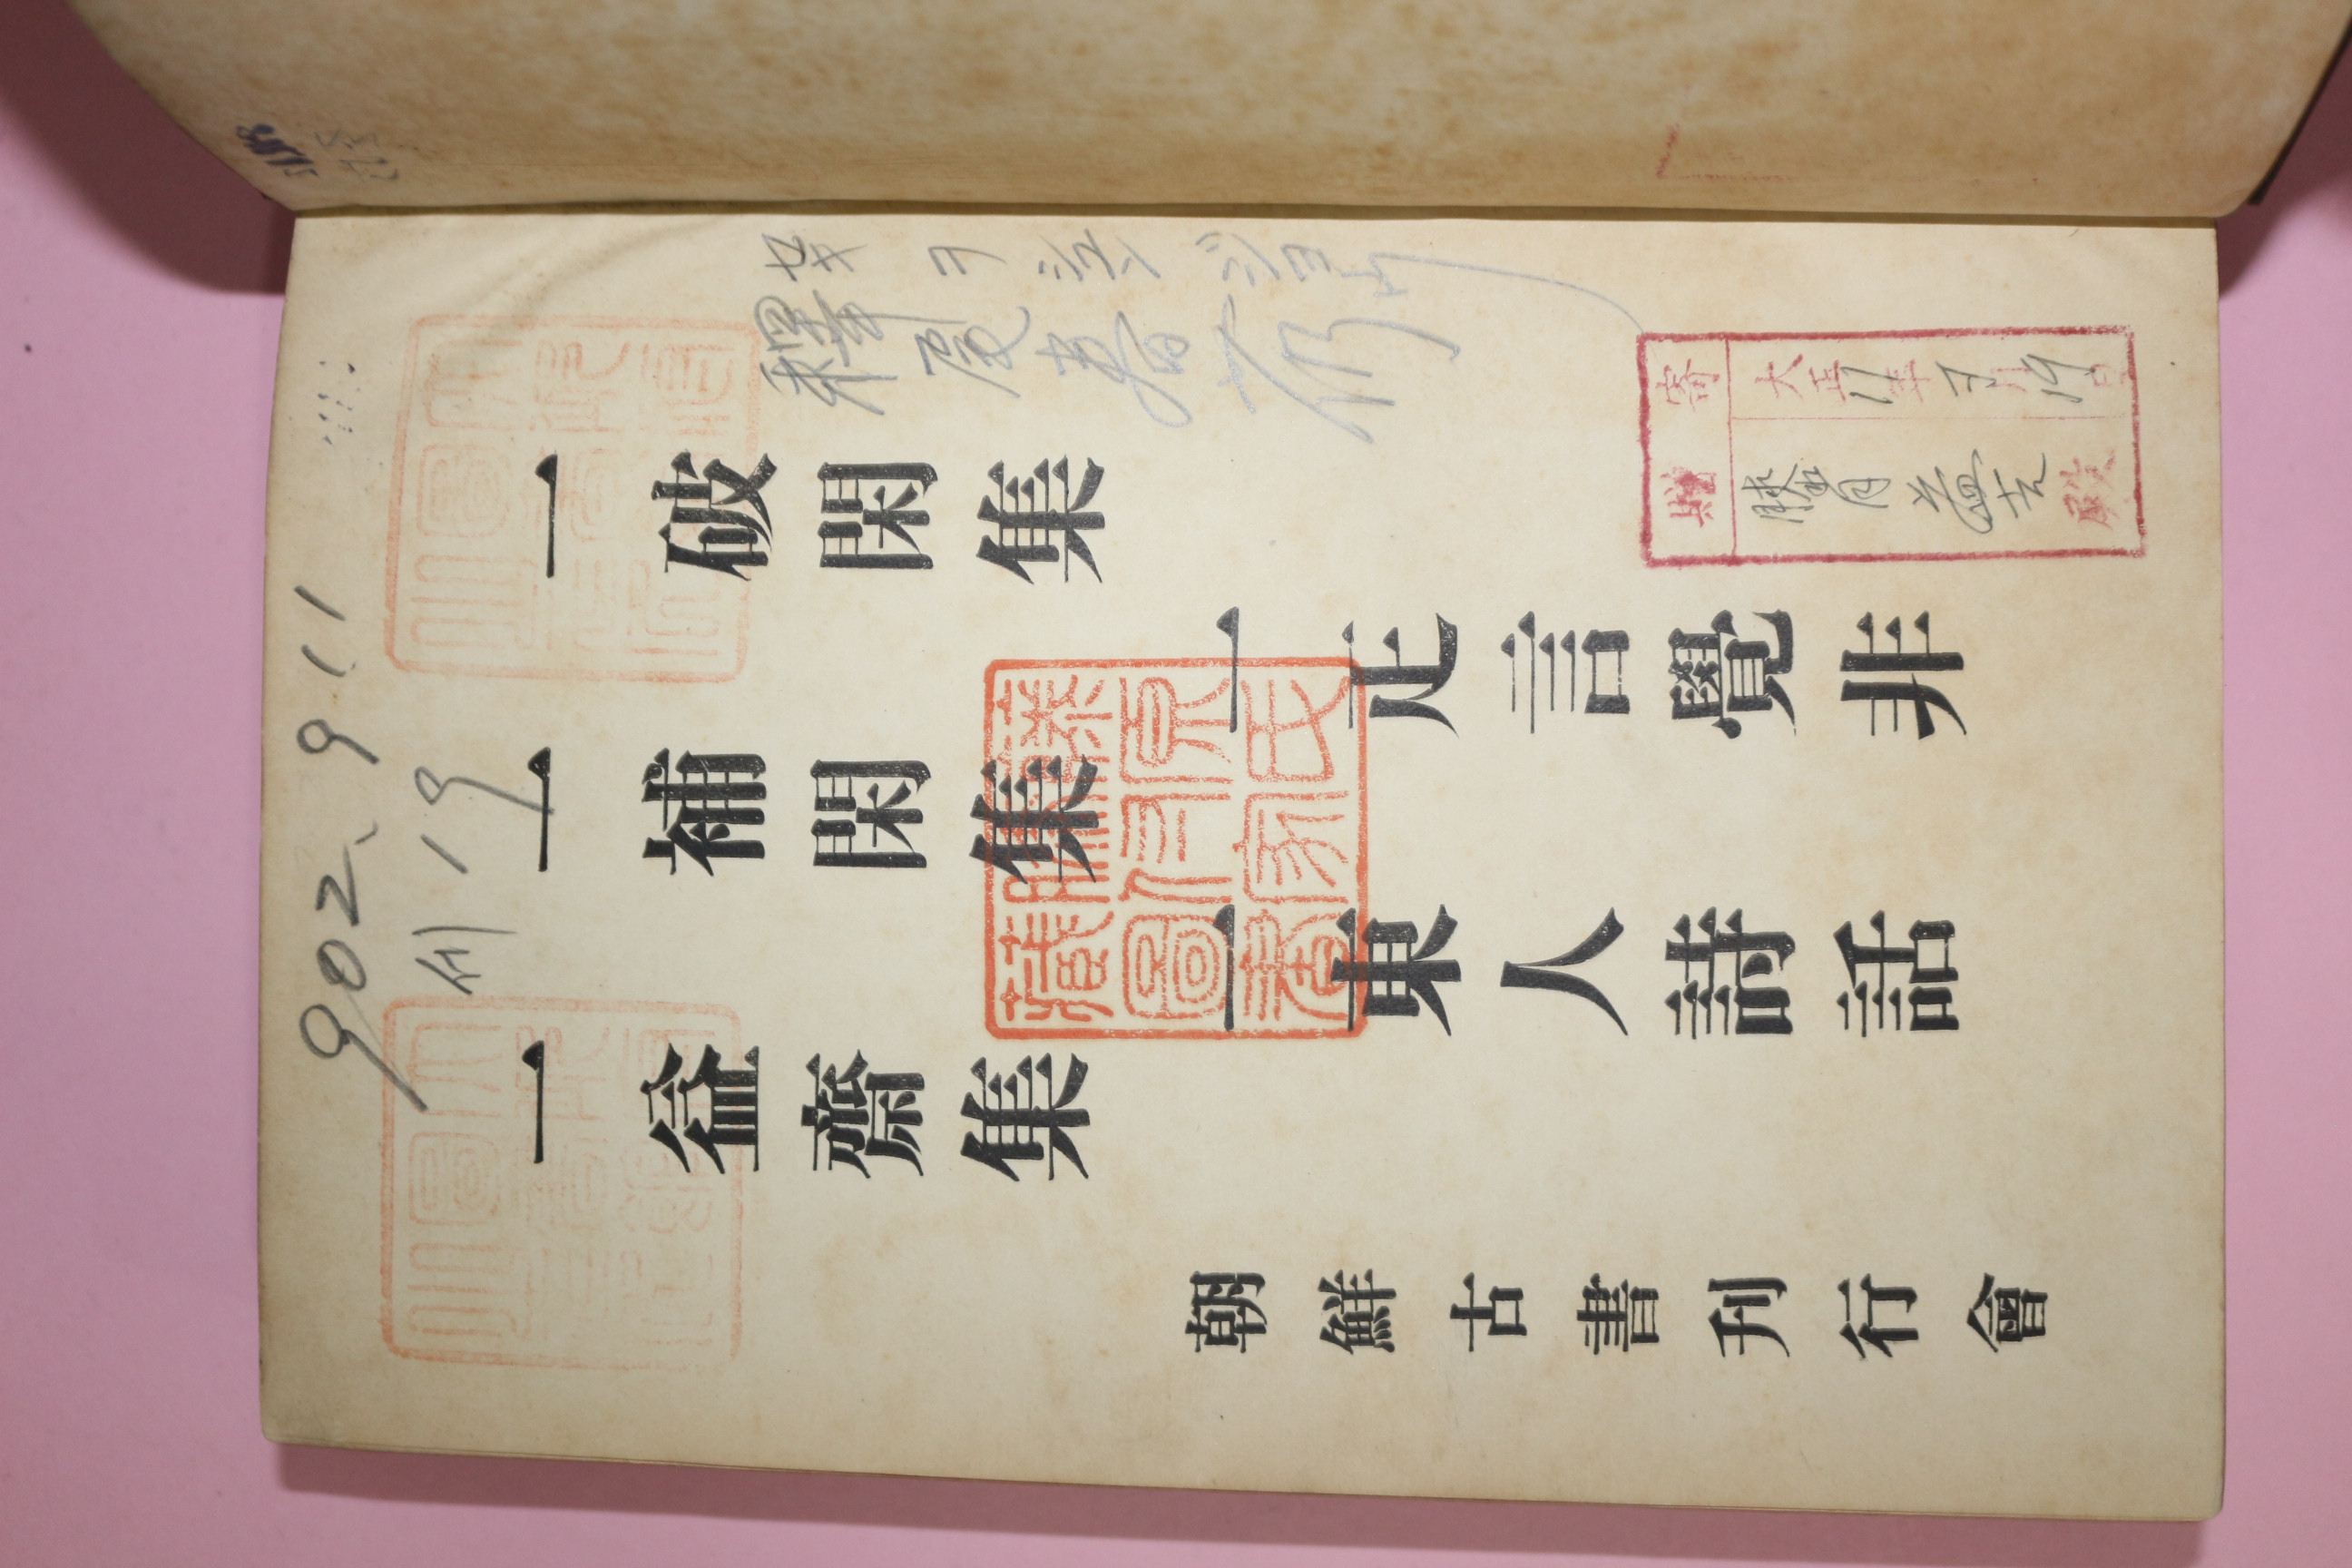 902.911
세19
セキヲシュンジョウ
釋尾春芿
一破閑集
一疋言覺非
一補閑集
一東人詩話
一益齋集
朝鮮古書刊行會
藤原氏
藏圖書
寄贈
大正11年ヲ月19日
勝月益吉殿